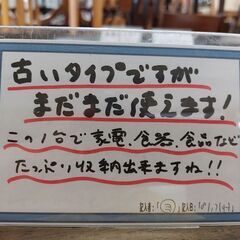 古いタイプですが
まだまだ使えます!
この1台で家電、食器、食品など
たっぷり収納出来ますね!!
記入者:(ヨ) 記入日: